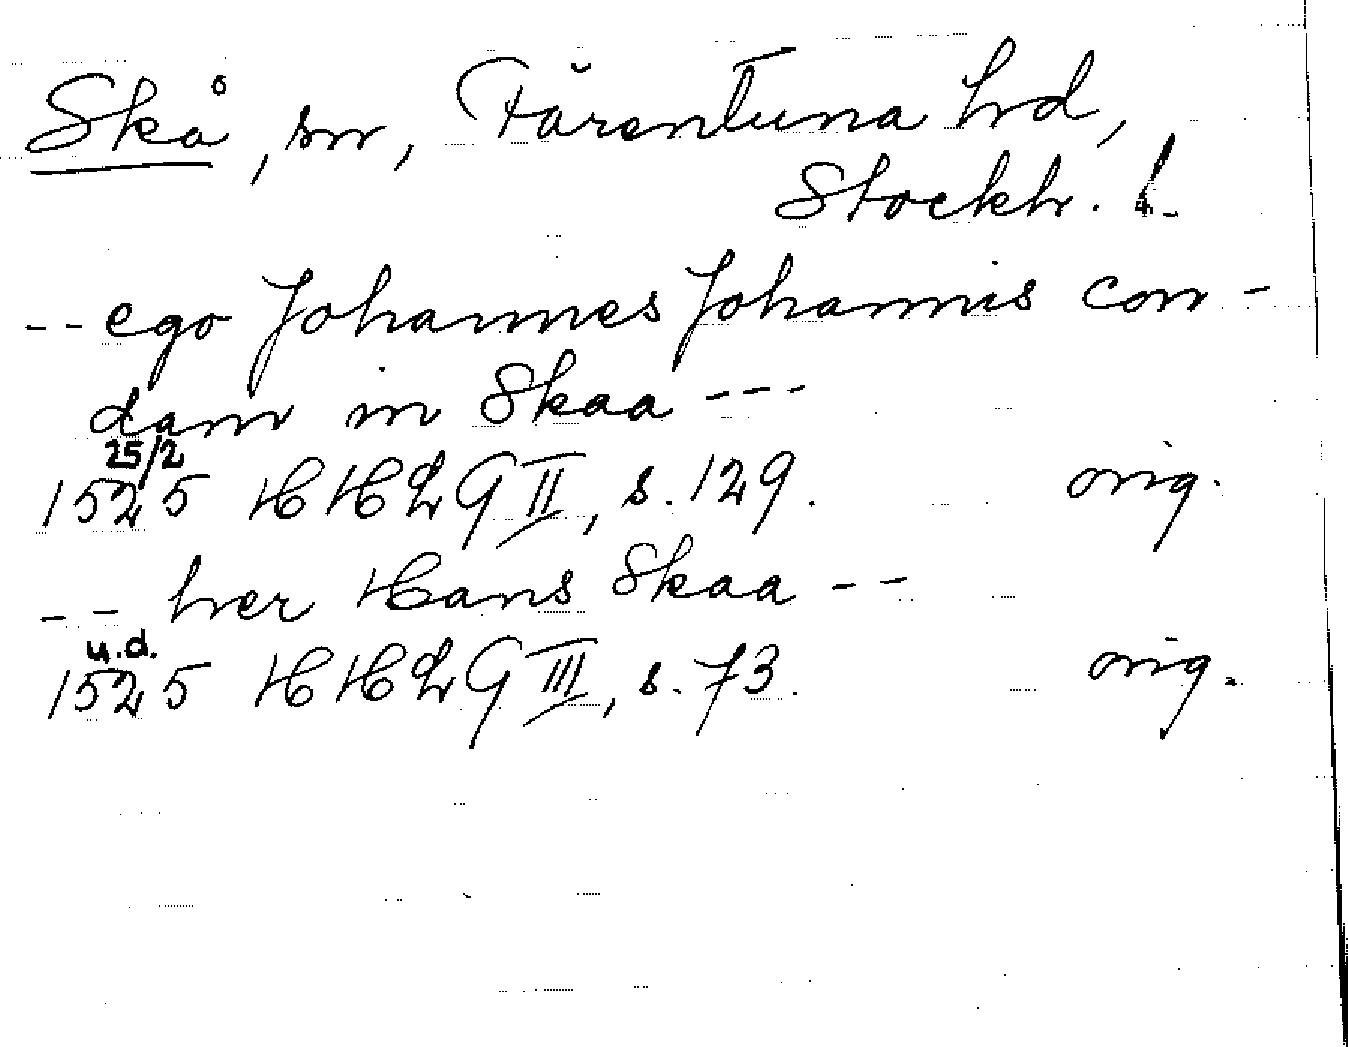 Skå, sn, Färentuna hd,
Stockh. l.
-- ego Johannes Johannis con-
dam in Skaa ---
25/2
1525 HHLG II, s. 129. orig.
-- her Hans Skaa --
u.d.
1525 HHLG III, s. 73. orig.